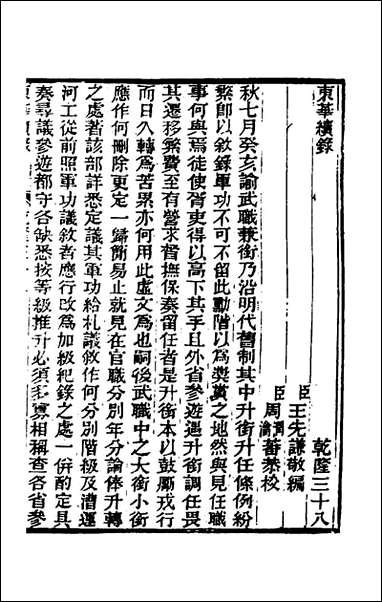 東華續錄
乾隆三十八
臣王先謙敬編
臣周潤蕃周渝蕃恭校
秋七月癸亥諭武職兼銜乃沿明代舊制其中升銜升任條例紛
繁即以敘錄軍功不可不留此勳階以為獎賞之地然與見任職
事何與焉徒使胥吏得以高下其手且外省參遊遇升銜調任畏
其遷移繁費至有營求督撫保奏留任者是升銜本以鼓勵戎行
而日久轉為苦累亦何用此虛文為也嗣後武職中之大銜小銜
應作何刪除更定一歸簡易止就見在官職分別年分論俸升轉
之處著該部詳悉定議其軍功給札議敘作何分別階級及漕運
河工從前照軍功議敘者應行改為加級紀錄之處一併酌定具
奏尋議參遊都守各缺悉按等級推升必須多寡相稱查各省參